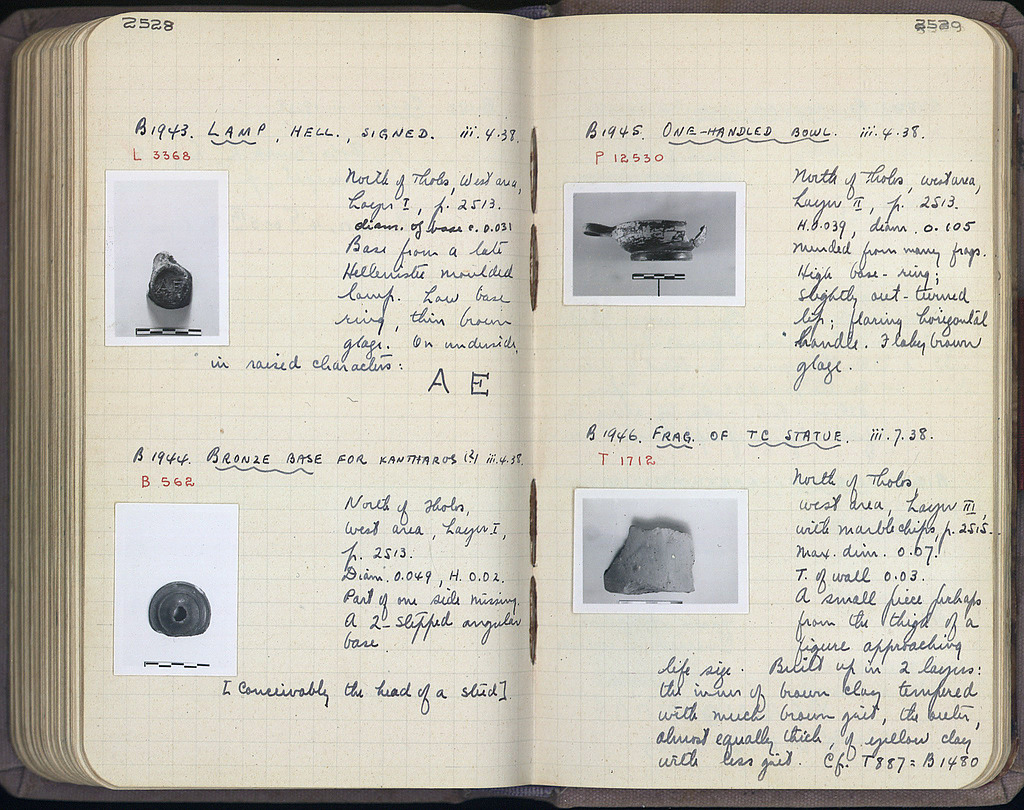 2528
B 1943. LAMP, HELL., SIGNED. iii.4.38.
L 3368
North of Tholos, West area,
Layer I, p. 2513.
diam. of base c. 0.031
Base from a late
Hellenistic moulded
lamp. Low base
ring, thin brown
glaze. On underside,
in raised characters:
A E
B 1944. BRONZE BASE FOR KANTHAROS (?) iii.4.38.
B 562
North of Tholos,
west area, Layer I,
p. 2513.
Diam. 0.049, H. 0.02.
Part of one side missing.
A 2-stepped angular
base.
[Conceivably the head of a stud]
2529
B 1945. ONE-HANDLED BOWL. iii.4.38.
P 12530
North of Tholos, west area,
Layer II, p. 2513.
H. 0.039, diam. 0.105
Mended from many frags.
High base-ring;
slightly out-turned
lip; flaring horizontal
handle. Flaky brown
glaze.
B 1946. FRAG. OF TC STATUE. iii.7.38.
T 1712
North of Tholos,
west area, Layer III,
with marble chips, p. 2515.
Max. dim. 0.07.
T. of wall 0.03.
A small piece perhaps
from the thigh of a
figure approaching
life size. Built up in 2 layers:
the inner of brown clay tempered
with much brown grit, the outer,
almost equally thick, of yellow clay
with less grit. Cf. T 887 = B 1480